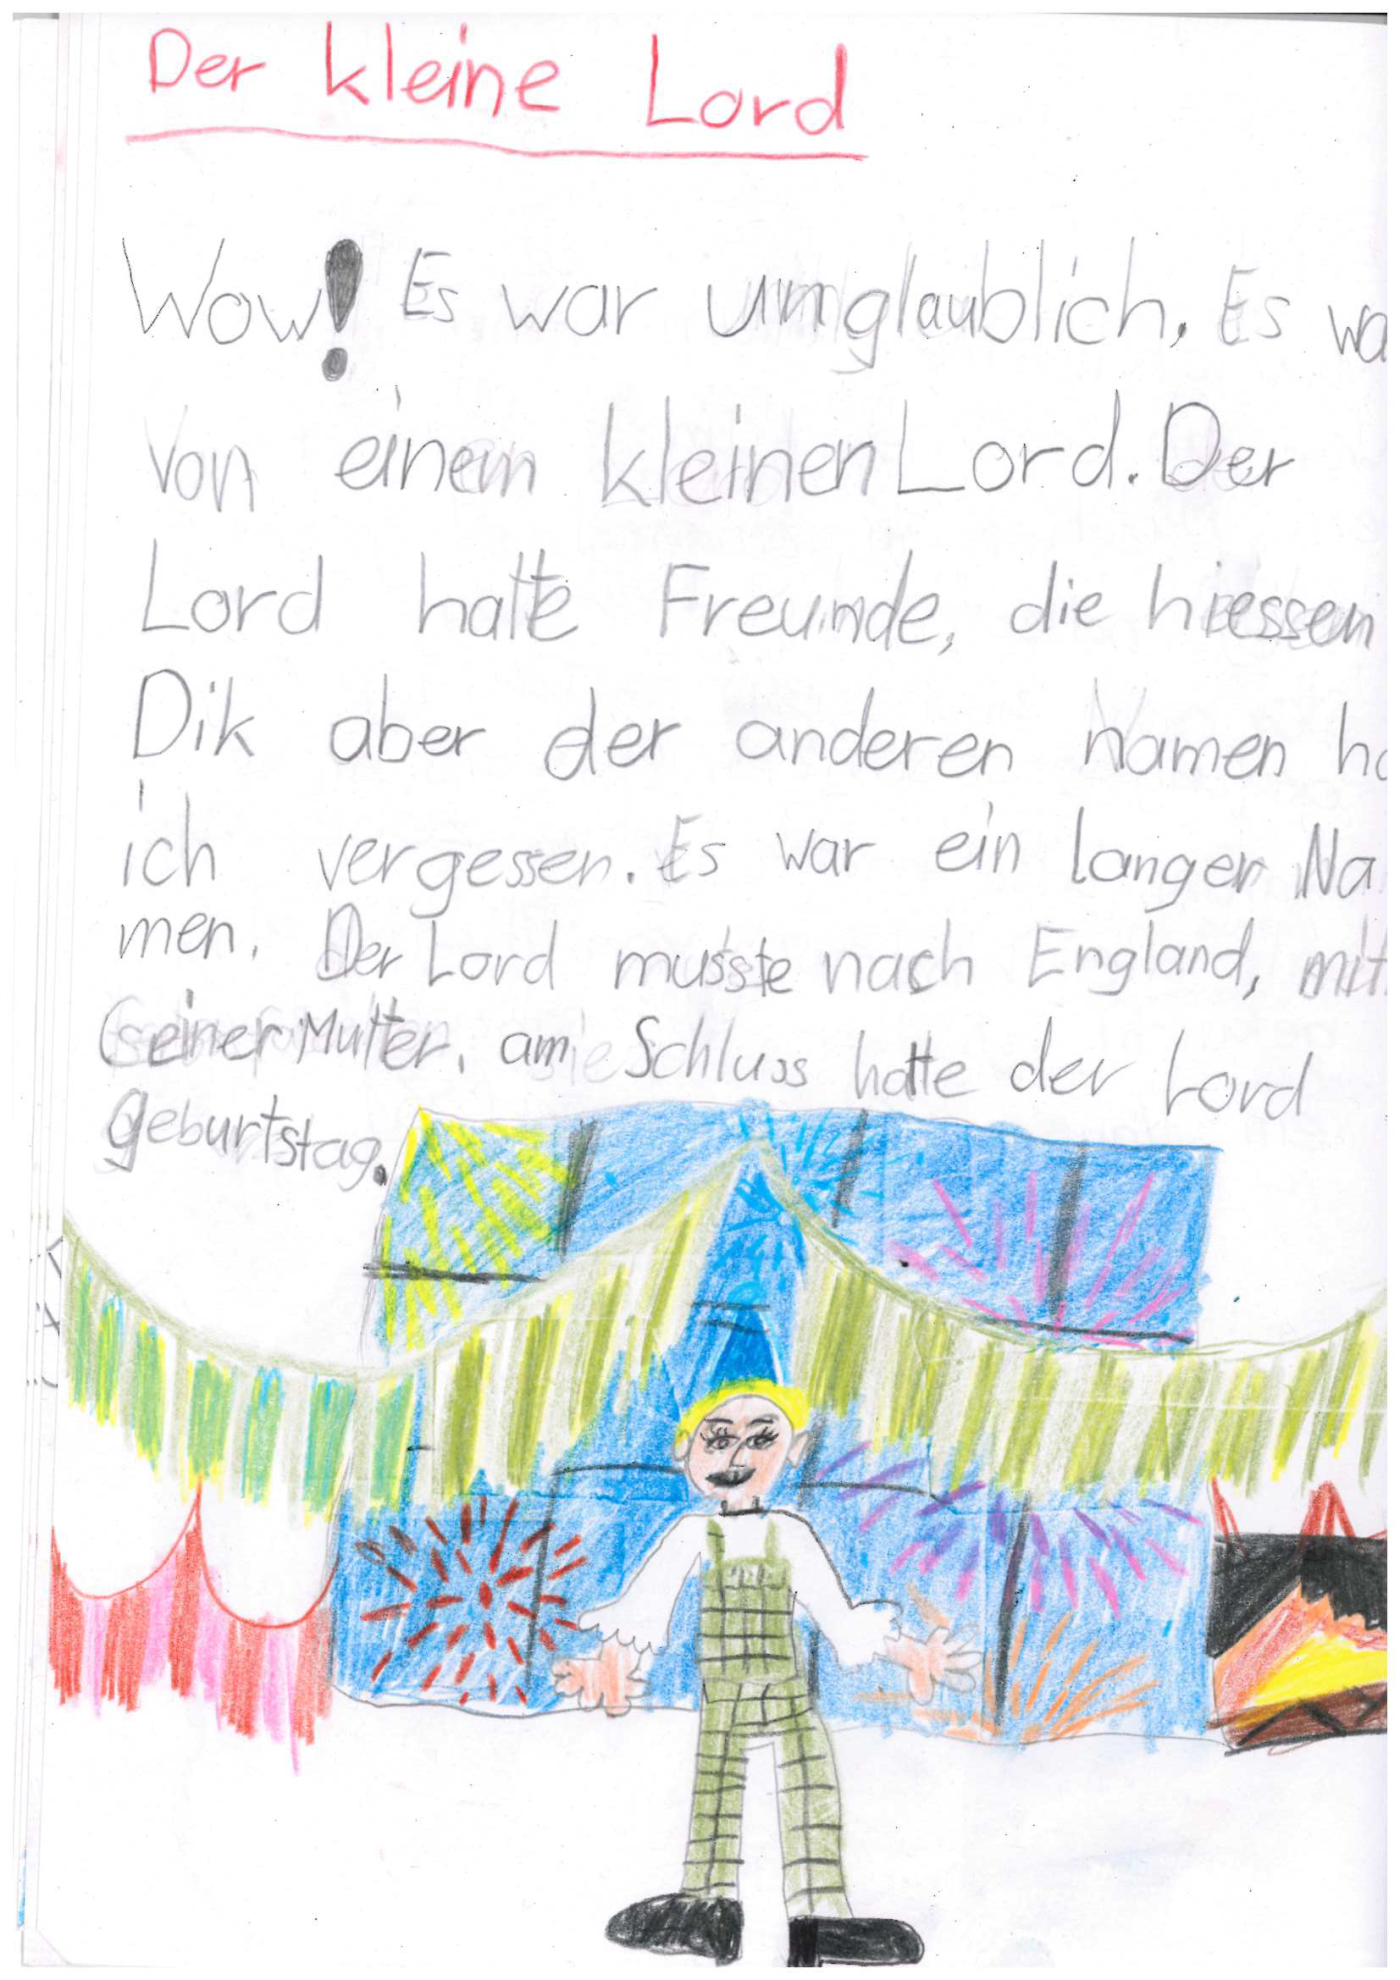 Der kleine Lord
Wow! Es war umglaublich. Es wa
von einem kleinen Lord. Der
Lord hatte Freunde, die hiessen
Dik aber der anderen Namen ha
ich vergessen. Es war ein langer Na
men. Der Lord musste nach England, mit
seiner Mutter. am Schluss hatte der Lord
geburtstag.